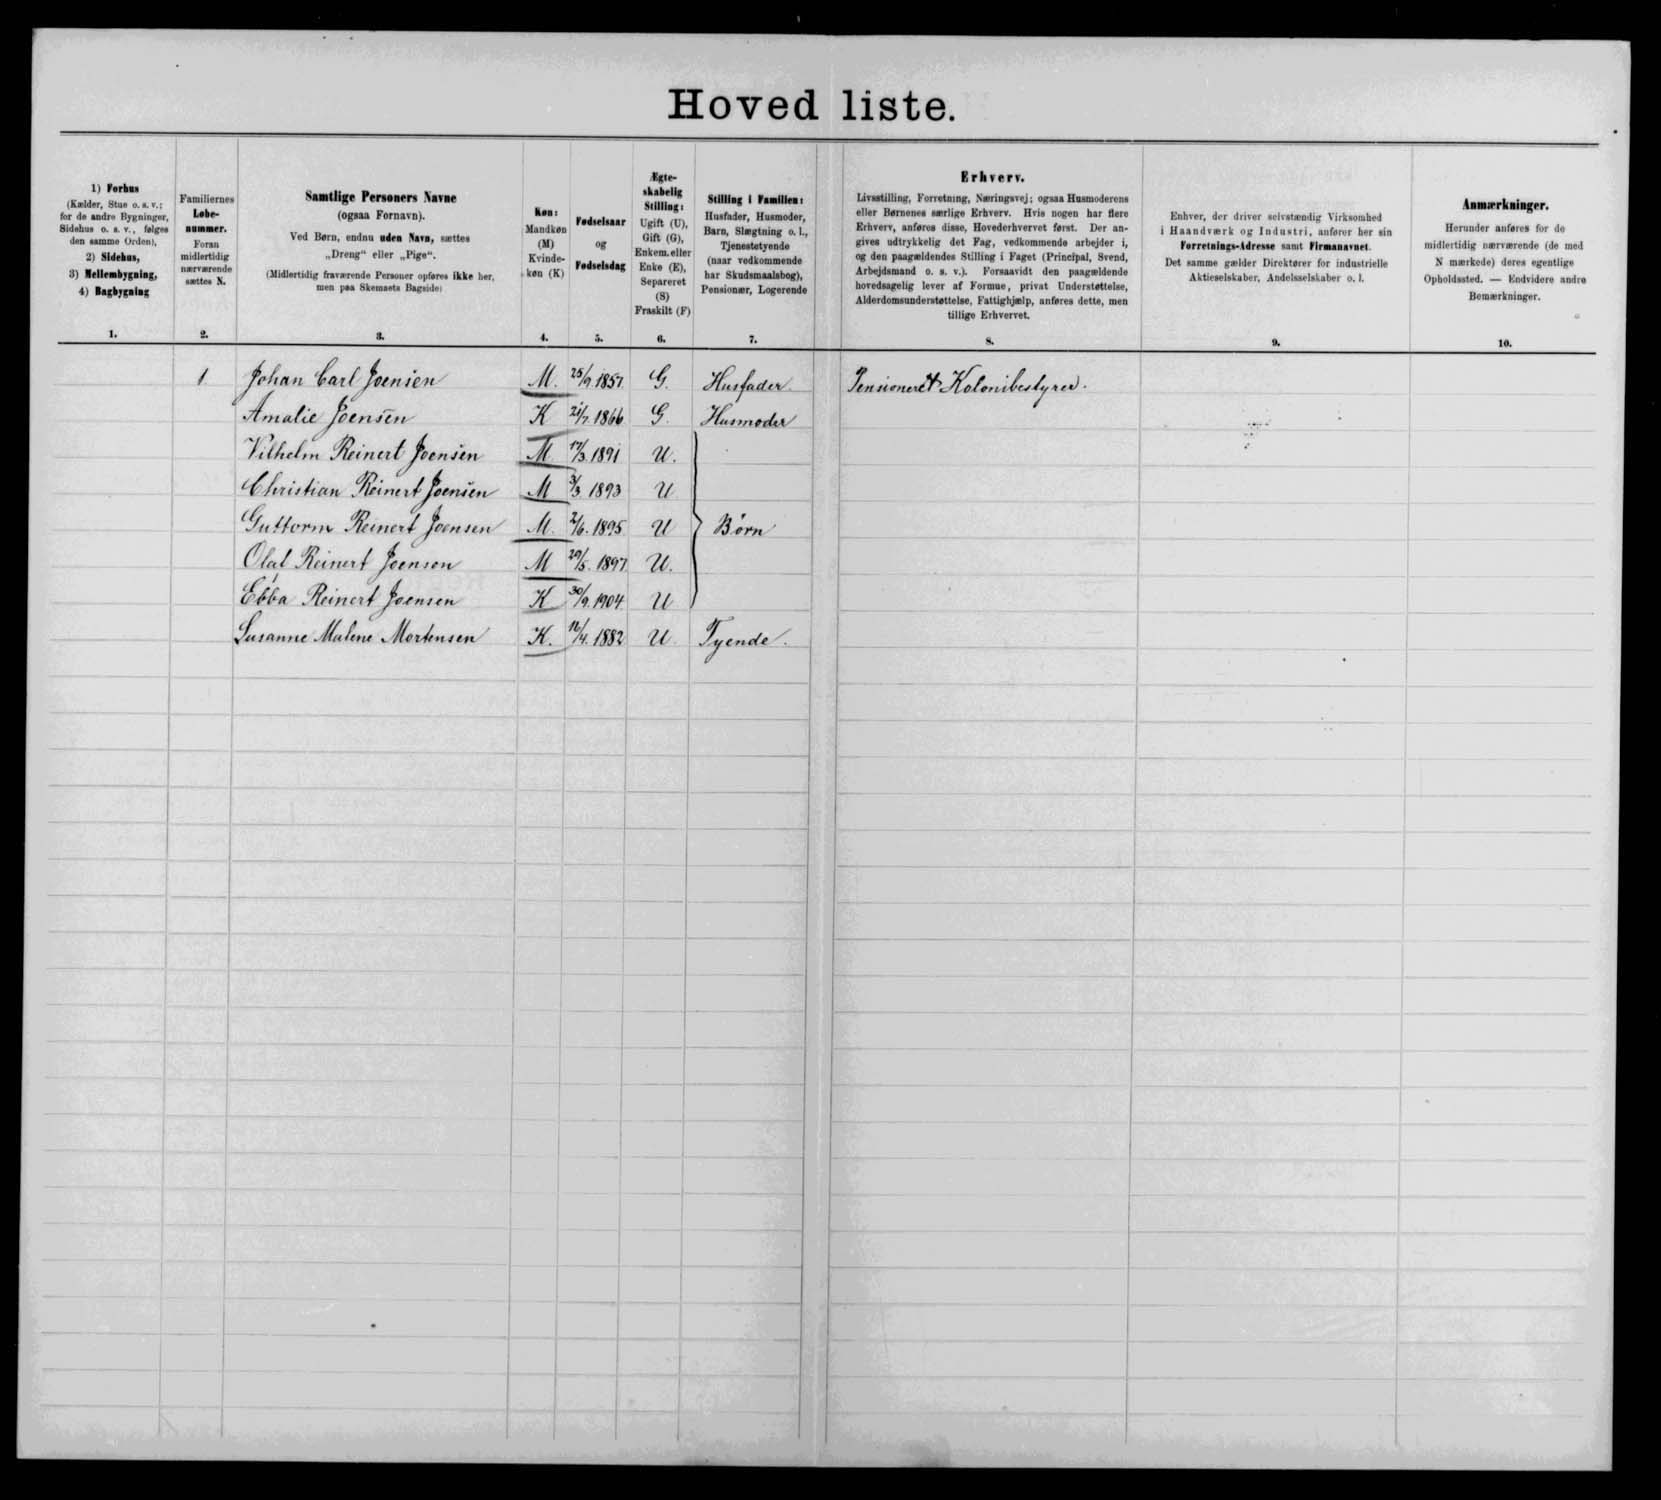 Hoved liste.
1) Forhus
(Kælder, Stue o. s. v.;
for de andre Bygninger,
Sidehus o. s. v., følges
den samme Orden),
2) Sidehus,
3) Mellembygning,
4) Bagbygning
1.
Familiernes
Løbe-
nummer.
Foran
midlertidig
nærværende
sættes N.
2.
Samtlige Personers Navne
(ogsaa Fornavn).
Ved Børn, endnu uden Navn, sættes
„Dreng“ eller „Pige“.
(Midlertidig fraværende Personer opføres ikke her,
men paa Skemaets Bagside)
3.
Køn:
Mandkøn
(M)
Kvinde-
køn (K)
4.
Fødselsaar
og
Fødselsdag
5.
Ægte-
skabelig
Stilling:
Ugift (U),
Gift (G),
Enkem. eller
Enke (E),
Separeret
(S)
Fraskilt (F)
6.
Stilling i Familien:
Husfader, Husmoder,
Barn, Slægtning o. l.,
Tjenestetyende
(naar vedkommende
har Skudsmaalsbog),
Pensionær, Logerende
7.
Erhverv.
Livsstilling, Forretning, Næringsvej; ogsaa Husmoderens
eller Børnenes særlige Erhverv. Hvis nogen har flere
Erhverv, anføres disse, Hovederhvervet først. Der an-
gives udtrykkelig det Fag, vedkommende arbejder i,
og den paagældendes Stilling i Faget (Principal, Svend,
Arbejdsmand o. s. v.). Forsaavidt den paagældende
hovedsagelig lever af Formue, privat Understøttelse,
Alderdomsunderstøttelse, Fattighjælp, anføres dette, men
tillige Erhvervet.
8.
Enhver, der driver selvstændig Virksomhed
i Haandværk og Industri, anfører her sin
Forretnings-Adresse samt Firmanavnet.
Det samme gælder Direktører for industrielle
Aktieselskaber, Andelsselskaber o. l.
9.
Anmærkninger.
Herunder anføres for de
midlertidig nærværende (de med
N mærkede) deres egentlige
Opholdssted. — Endvidere andre
Bemærkninger.
10.
1 Johan Carl Joensen M. 25/9. 1857. G. Husfader. Pensioneret Kolonibestyrer.
Amalie Joensen K 21/7. 1866 G. Husmoder
Vilhelm Reinert Joensen M. 17/3. 1891 U.
Christian Reinert Joensen M 3/3. 1893 U
Guttorm Reinert Joensen M. 2/6. 1895 U Børn
Olaf Reinert Joensen M 29/5. 1897 U.
Ebba Reinert Joensen K 30/9. 1904. U
Susanne Malene Mortensen K. 16/4. 1882 U. Tyende.